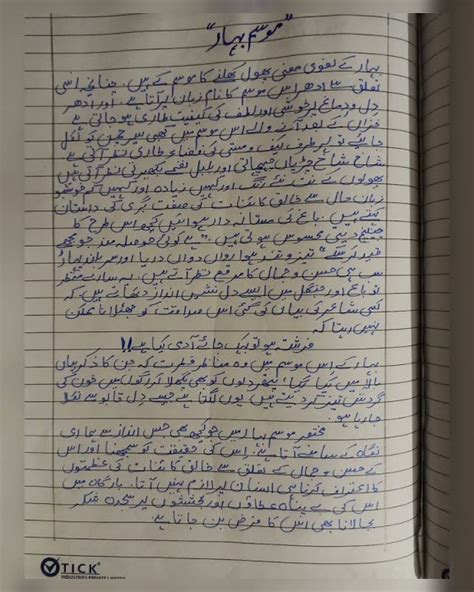 "موسم بہار"
بہار کے لغوی معنی پھول کھلنے کا موسم کے ہیں، چنانچہ اسی
تعلق سے ادھر اس موسم کا نام زبان پر آتا ہے، اور ادھر
دل و دماغ پر خوشی اور لطف کی کیفیت طاری ہو جاتی ہے
خزاں کے بعد آنے والے اس موسم میں کبھی سیر چمن کو نکل
جائیے تو ہر طرف کیف و مستی کی فضاء طاری نظر آتی ہے
شاخ شاخ چڑیاں چہچہاتی اور بلبل نغمے بکھیرتی نظر آتی ہیں
پھولوں کے نت نئے رنگ اور کہیں زیادہ اور کہیں کم خوشبو
زبان حال سے خالق کائنات کی صنعت گری کی داستان
کہتے ہیں۔ باغ کی مستانہ دار ہوائیں کچھ اس طرح کا
چیلنج دیتی محسوس ہوتی ہیں، "ہے کوئی حوصلہ مند جو مجھے
قید کر سکے" تیز و تند ہوا رواں دواں دریا اور سر بلند پہاڑ
سب ہی حسن و جمال کا مرقع نظر آتے ہیں۔ یہ سارے منظر
تو باغ اور جنگل میں ایسے دل نشیں انداز دکھاتے ہیں کہ
کسی شاعر کی بیان کی گئی اس صداقت کو جھٹلانا ممکن
نہیں رہتا کہ
فرشتہ ہو تو بہک جائے آدمی کیا ہے!!
بہار کے اس موسم میں وہ مناظر فطرت کہ جن کا ذکر یہاں
بالا میں کیا گیا، پتھر دلوں کو بھی پگھلا کر رگوں میں خون کی
گردش تیز کر دیتے ہیں یوں لگتا ہے جیسے دل قابو سے نکلا
جا رہا ہو۔
مختصر موسم بہار میں جو کچھ بھی جس انداز سے ہماری
نگاہ کے سامنے آتا ہے۔ اس کی حقیقت کو سمجھنا اور اس
کے حسن و جمال کے تعلق سے خالق کائنات کی عظمتوں
کا اعتراف کرنا ہی انسان پر لازم نہیں آتا۔ بارگاہ میں
اس کی بے پناہ عطاؤں اور بخششوں پر سجدہ شکر
بجا لانا بھی اس کا فرض بن جاتا ہے۔
TICK